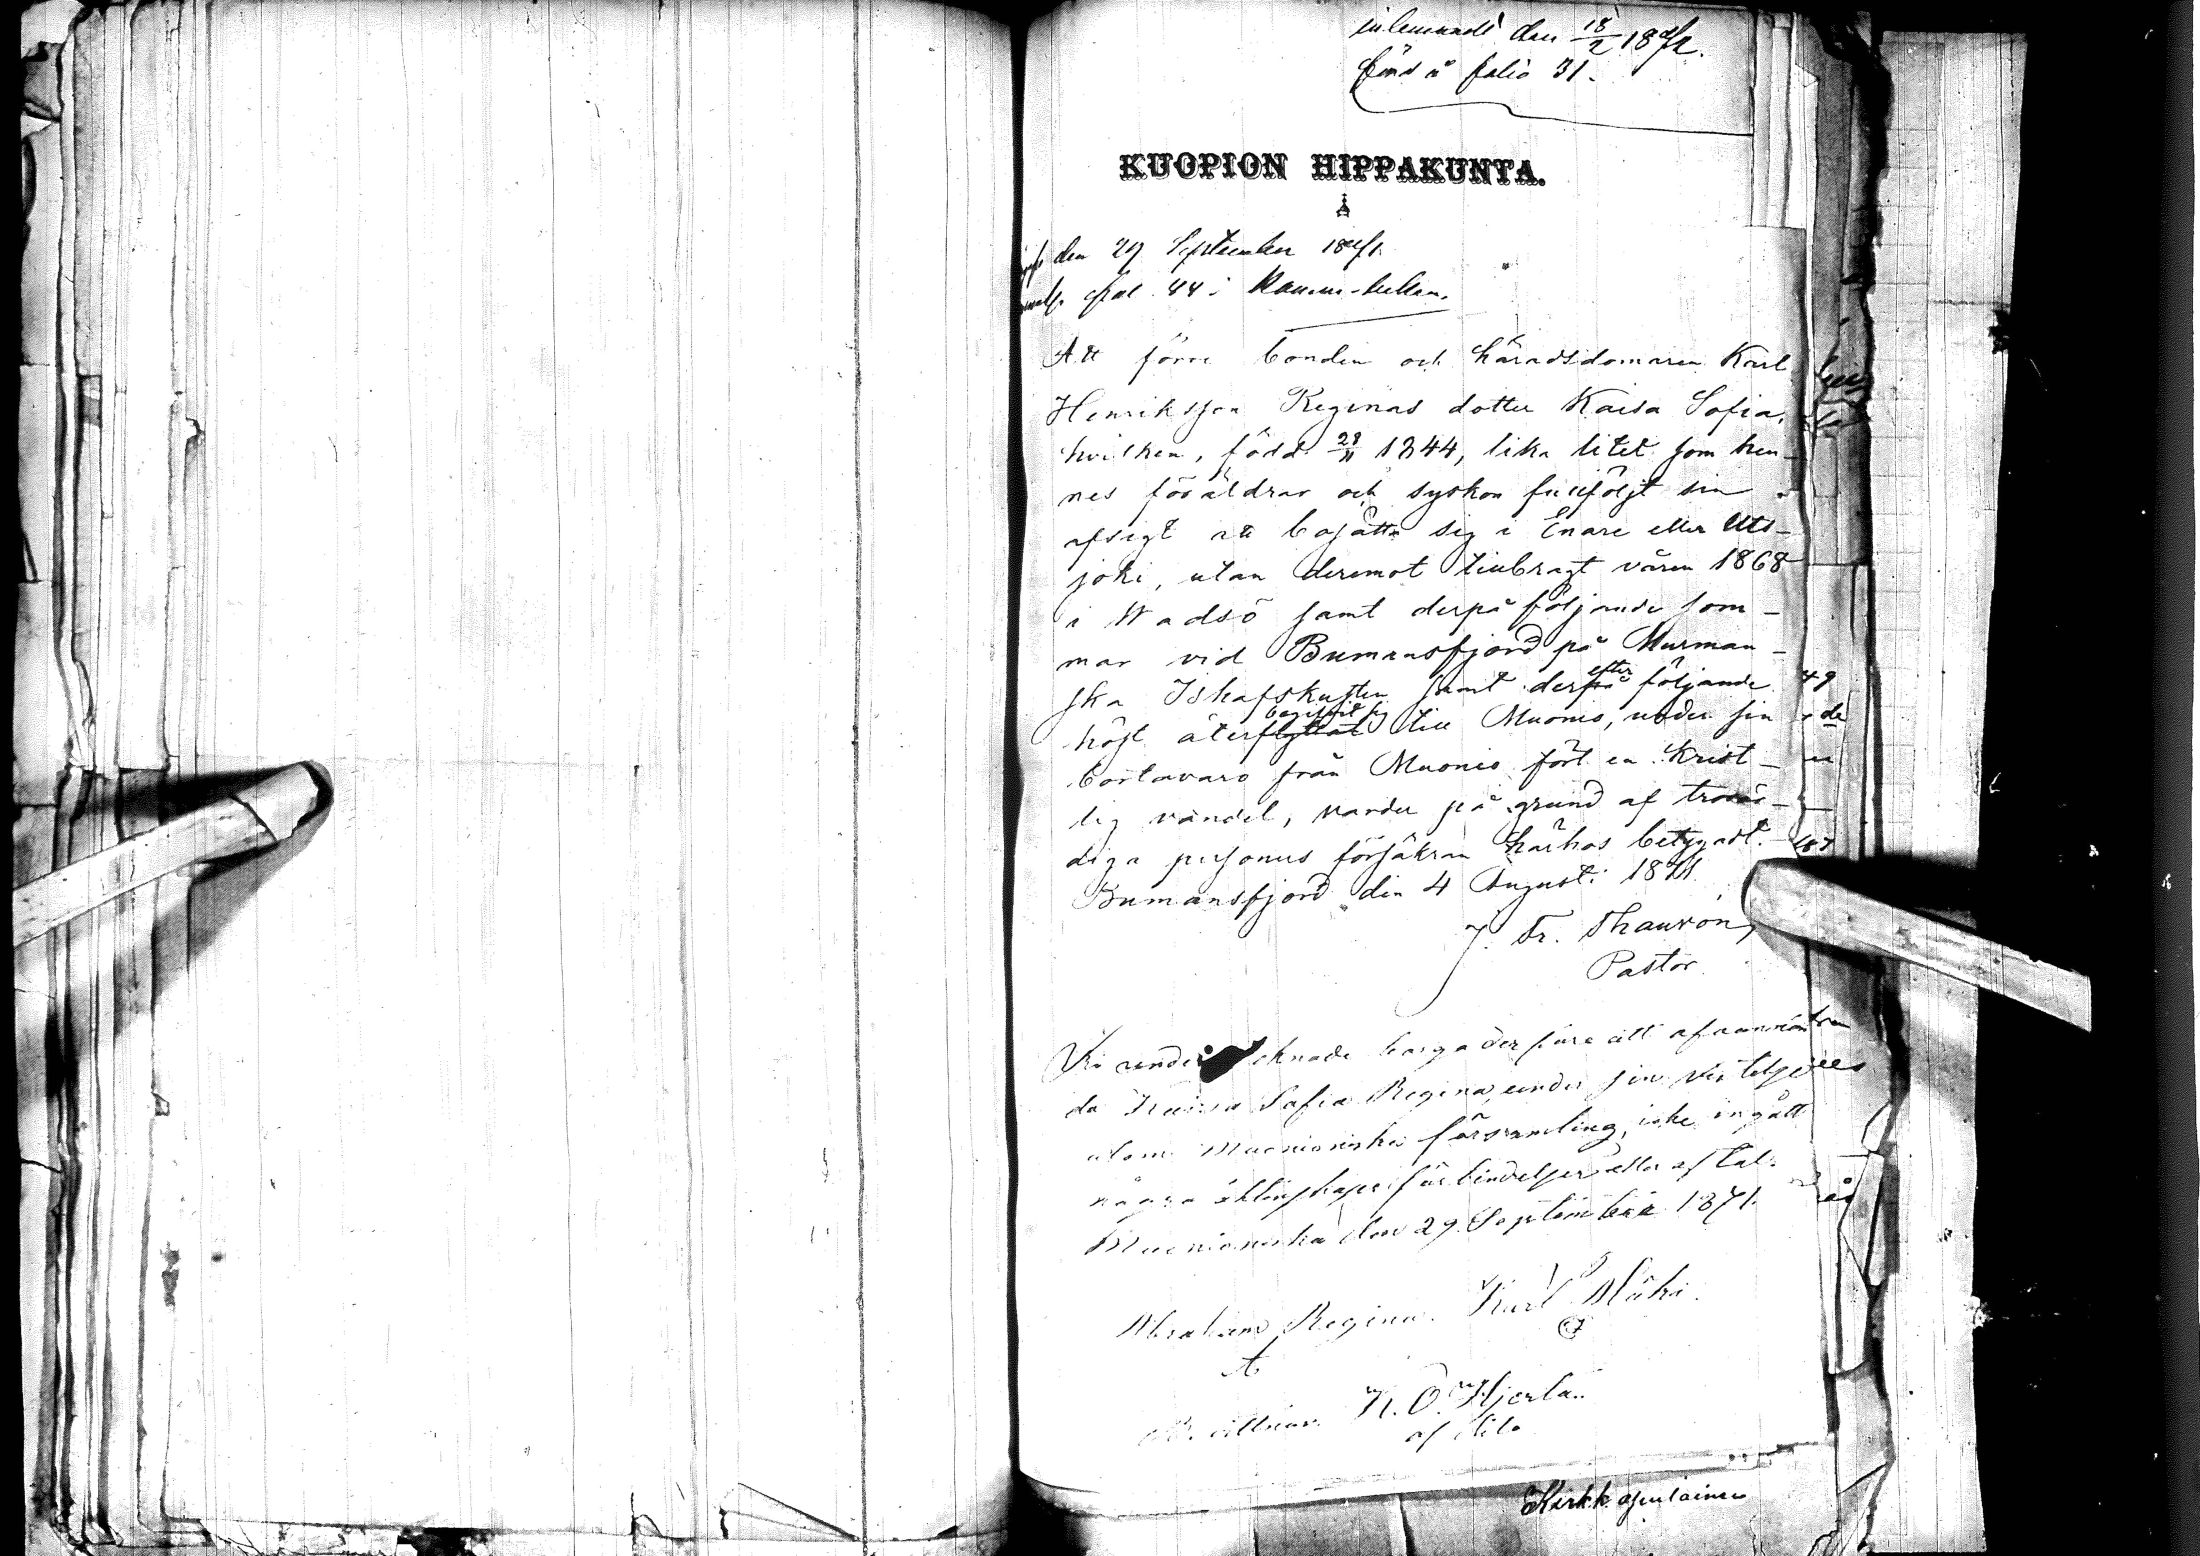 den 18/2 1872.
förd å folio 31.
KUOPION HIPPAKUNTA.
den 29 September 1871.
fol. 44 i
Att förre bonden och häradsdomaren Karl
Henriksson Reginas dotter Kaisa Sofia,
hvilken, född 28/11 1844, lika litet som hen-
nes föräldrar och syskon fullföljt sin
afsigt att bosätta sig i Enare eller Uts-
joki, utan deremot tillbragt våren 1868
i Wadsö samt derpå följande som-
mar vid Bumansfjord på Murman-
ska Ishafskusten samt derefter följande
höst återbegifvit sig till Muonio, under sin
bortavaro från Muonio fört en Krist-
lig vandel, varder på grund af trovär-
diga personers försäkran härhos betygadt.
Bumansfjord den 4 Augusti 1871.
J. Fr. Thauvón,
Pastor
Vi undertecknade borga derföre att
da Kaisa Sofia Regina, under sin vistelse
utom Muonioniska församling, icke ingått
några äktenskapsförbindelser eller aftal.
Muonioniska den 29 September 1871.
Abraham Regina. Karl Mäki.
K. O. Hjerta..